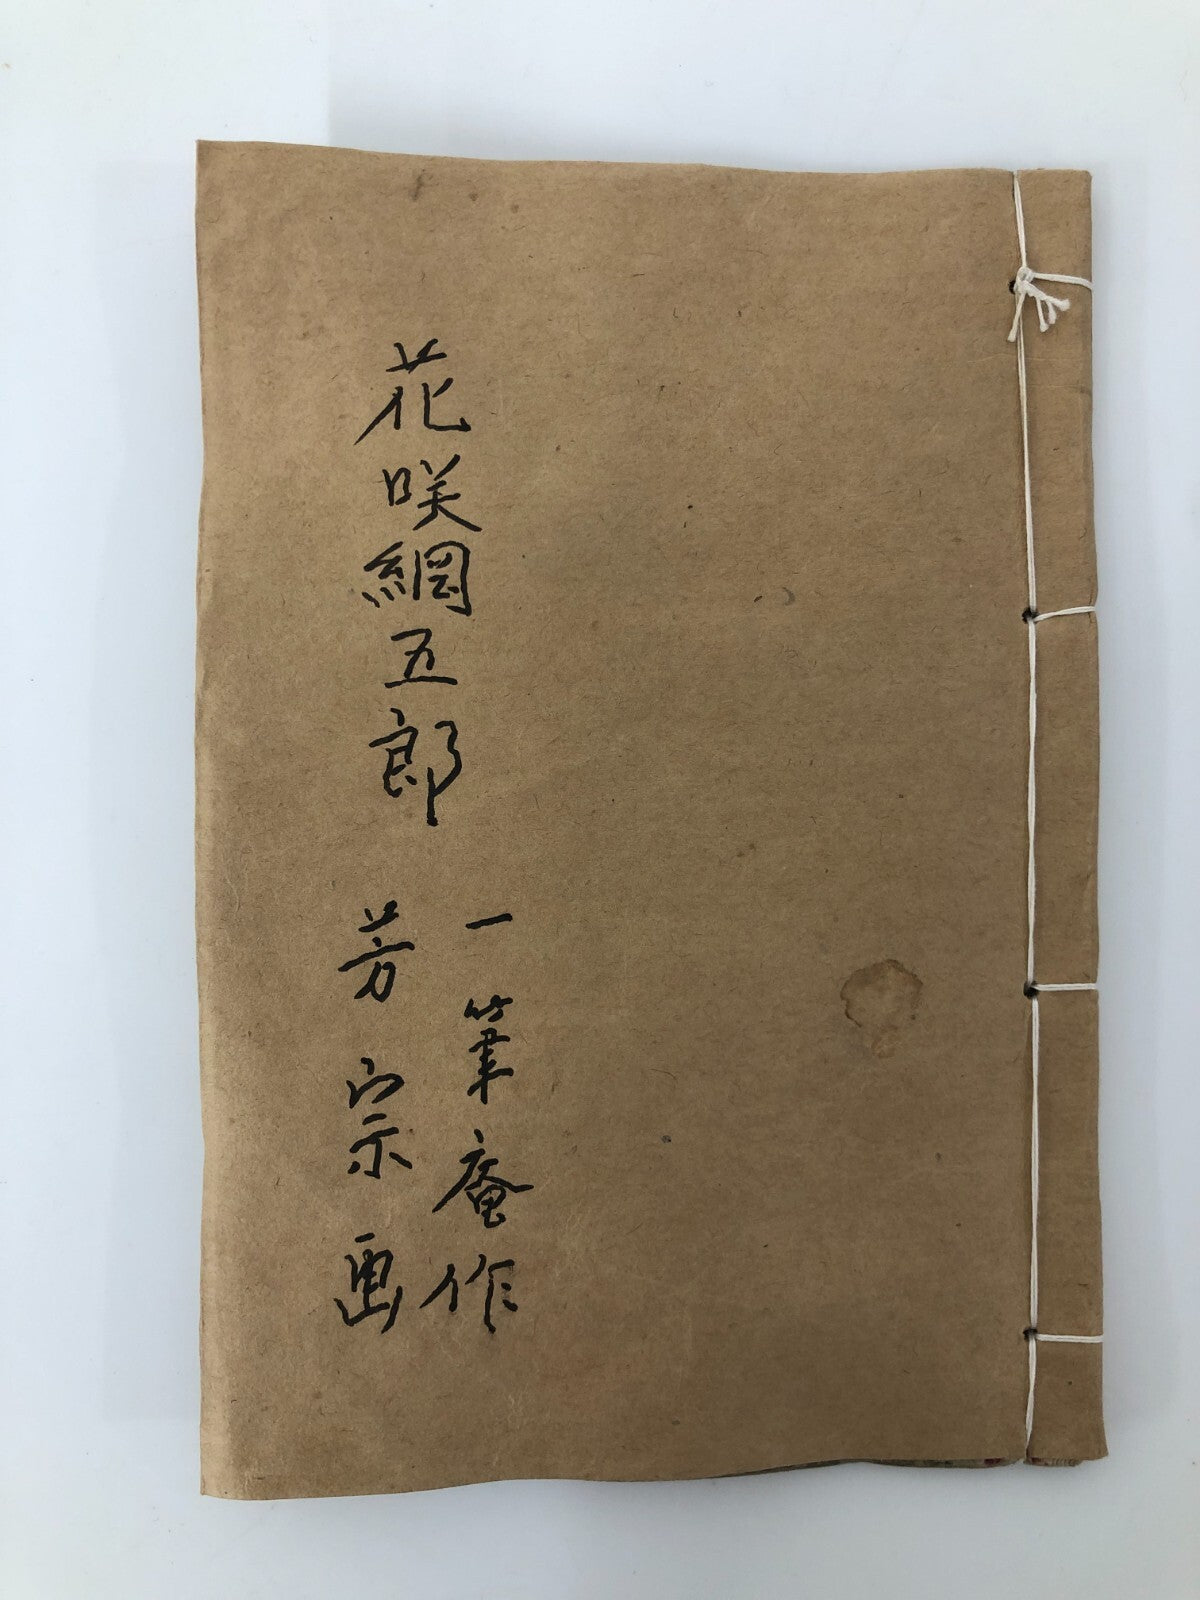 花咲綱五郎
一筆庵作
芳宗画